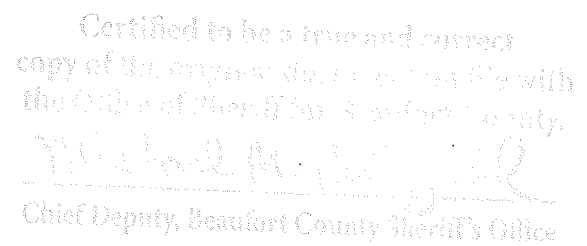 Certified to be a true and correct
copy of the original document on file with
the Office of Sheriff for Beaufort County.
Chief Deputy, Beaufort County Sheriff's Office